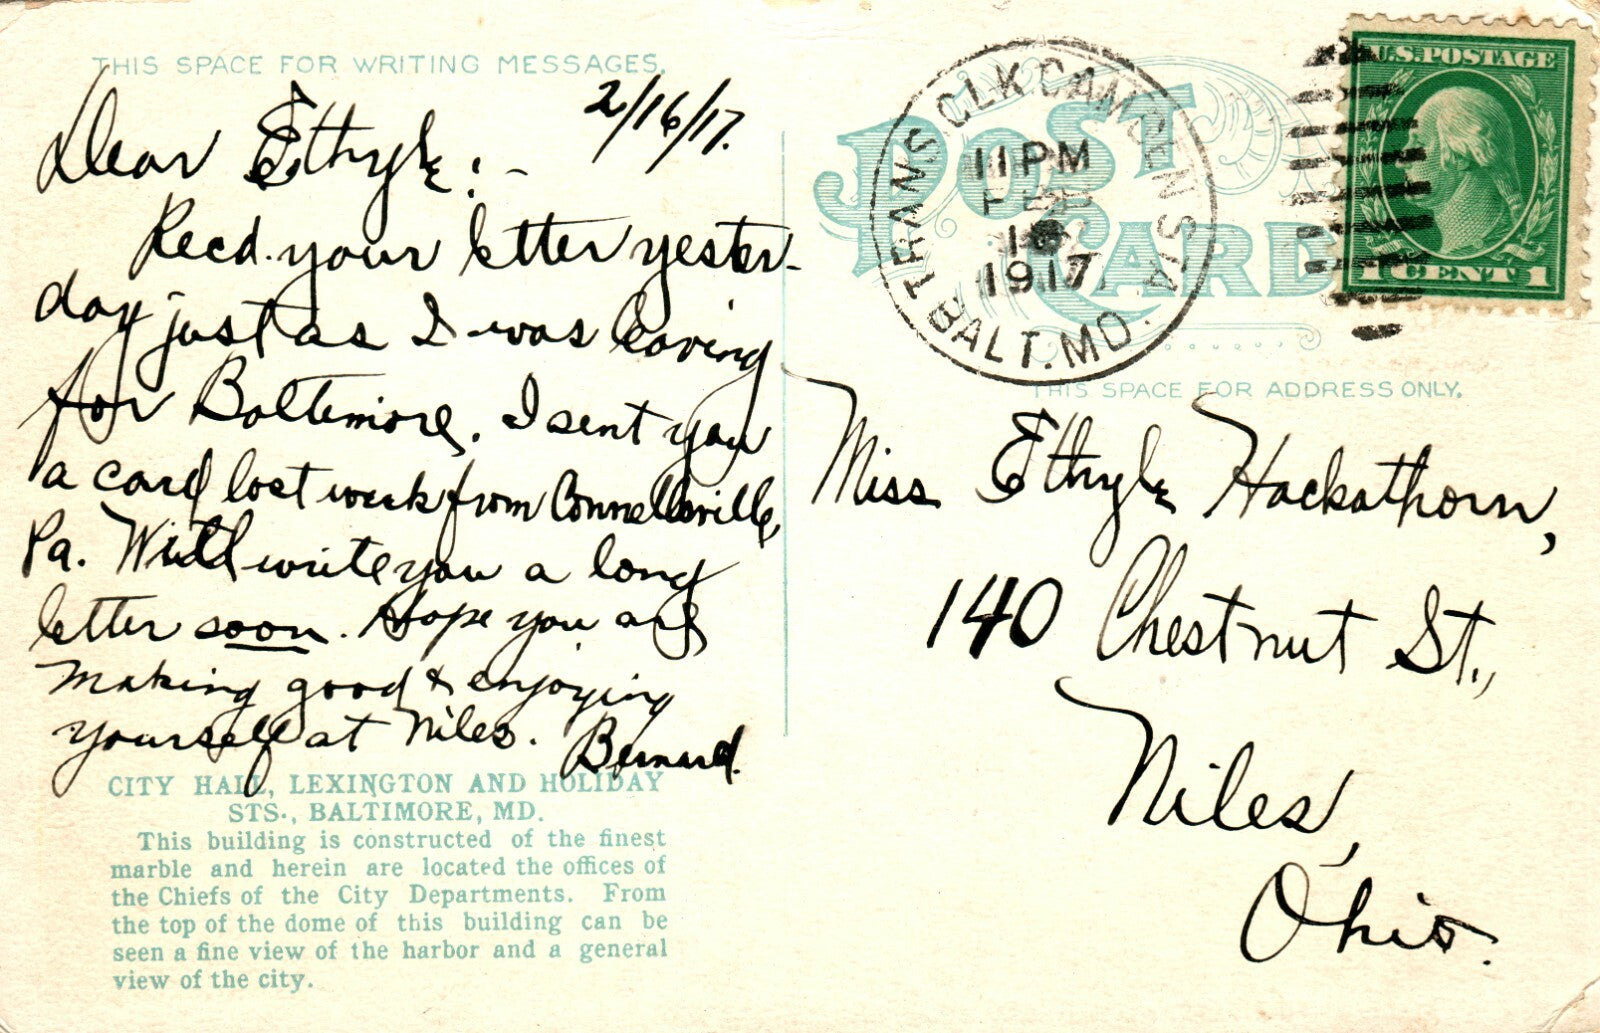 THIS SPACE FOR WRITING MESSAGES.
2/16/17.
Dear Ethyle:-
Recd. your letter yester-
day just as I was leaving
for Baltimore. I sent you
a card last week from Connellsville,
Pa. Will write you a long
letter soon. Hope you are
making good & enjoying
yourself at Niles.
Bernard.
CITY HALL, LEXINGTON AND HOLIDAY
STS., BALTIMORE, MD.
This building is constructed of the finest
marble and herein are located the offices of
the Chiefs of the City Departments. From
the top of the dome of this building can be
seen a fine view of the harbor and a general
view of the city.
POST
CARD
TRANS. CLK CAMDEN STA.
11 PM
FEB
1917
BALT. MD.
U.S. POSTAGE
1 CENT 1
THIS SPACE FOR ADDRESS ONLY.
Miss Ethyle Hackathorn,
140 Chestnut St.,
Niles,
Ohio.